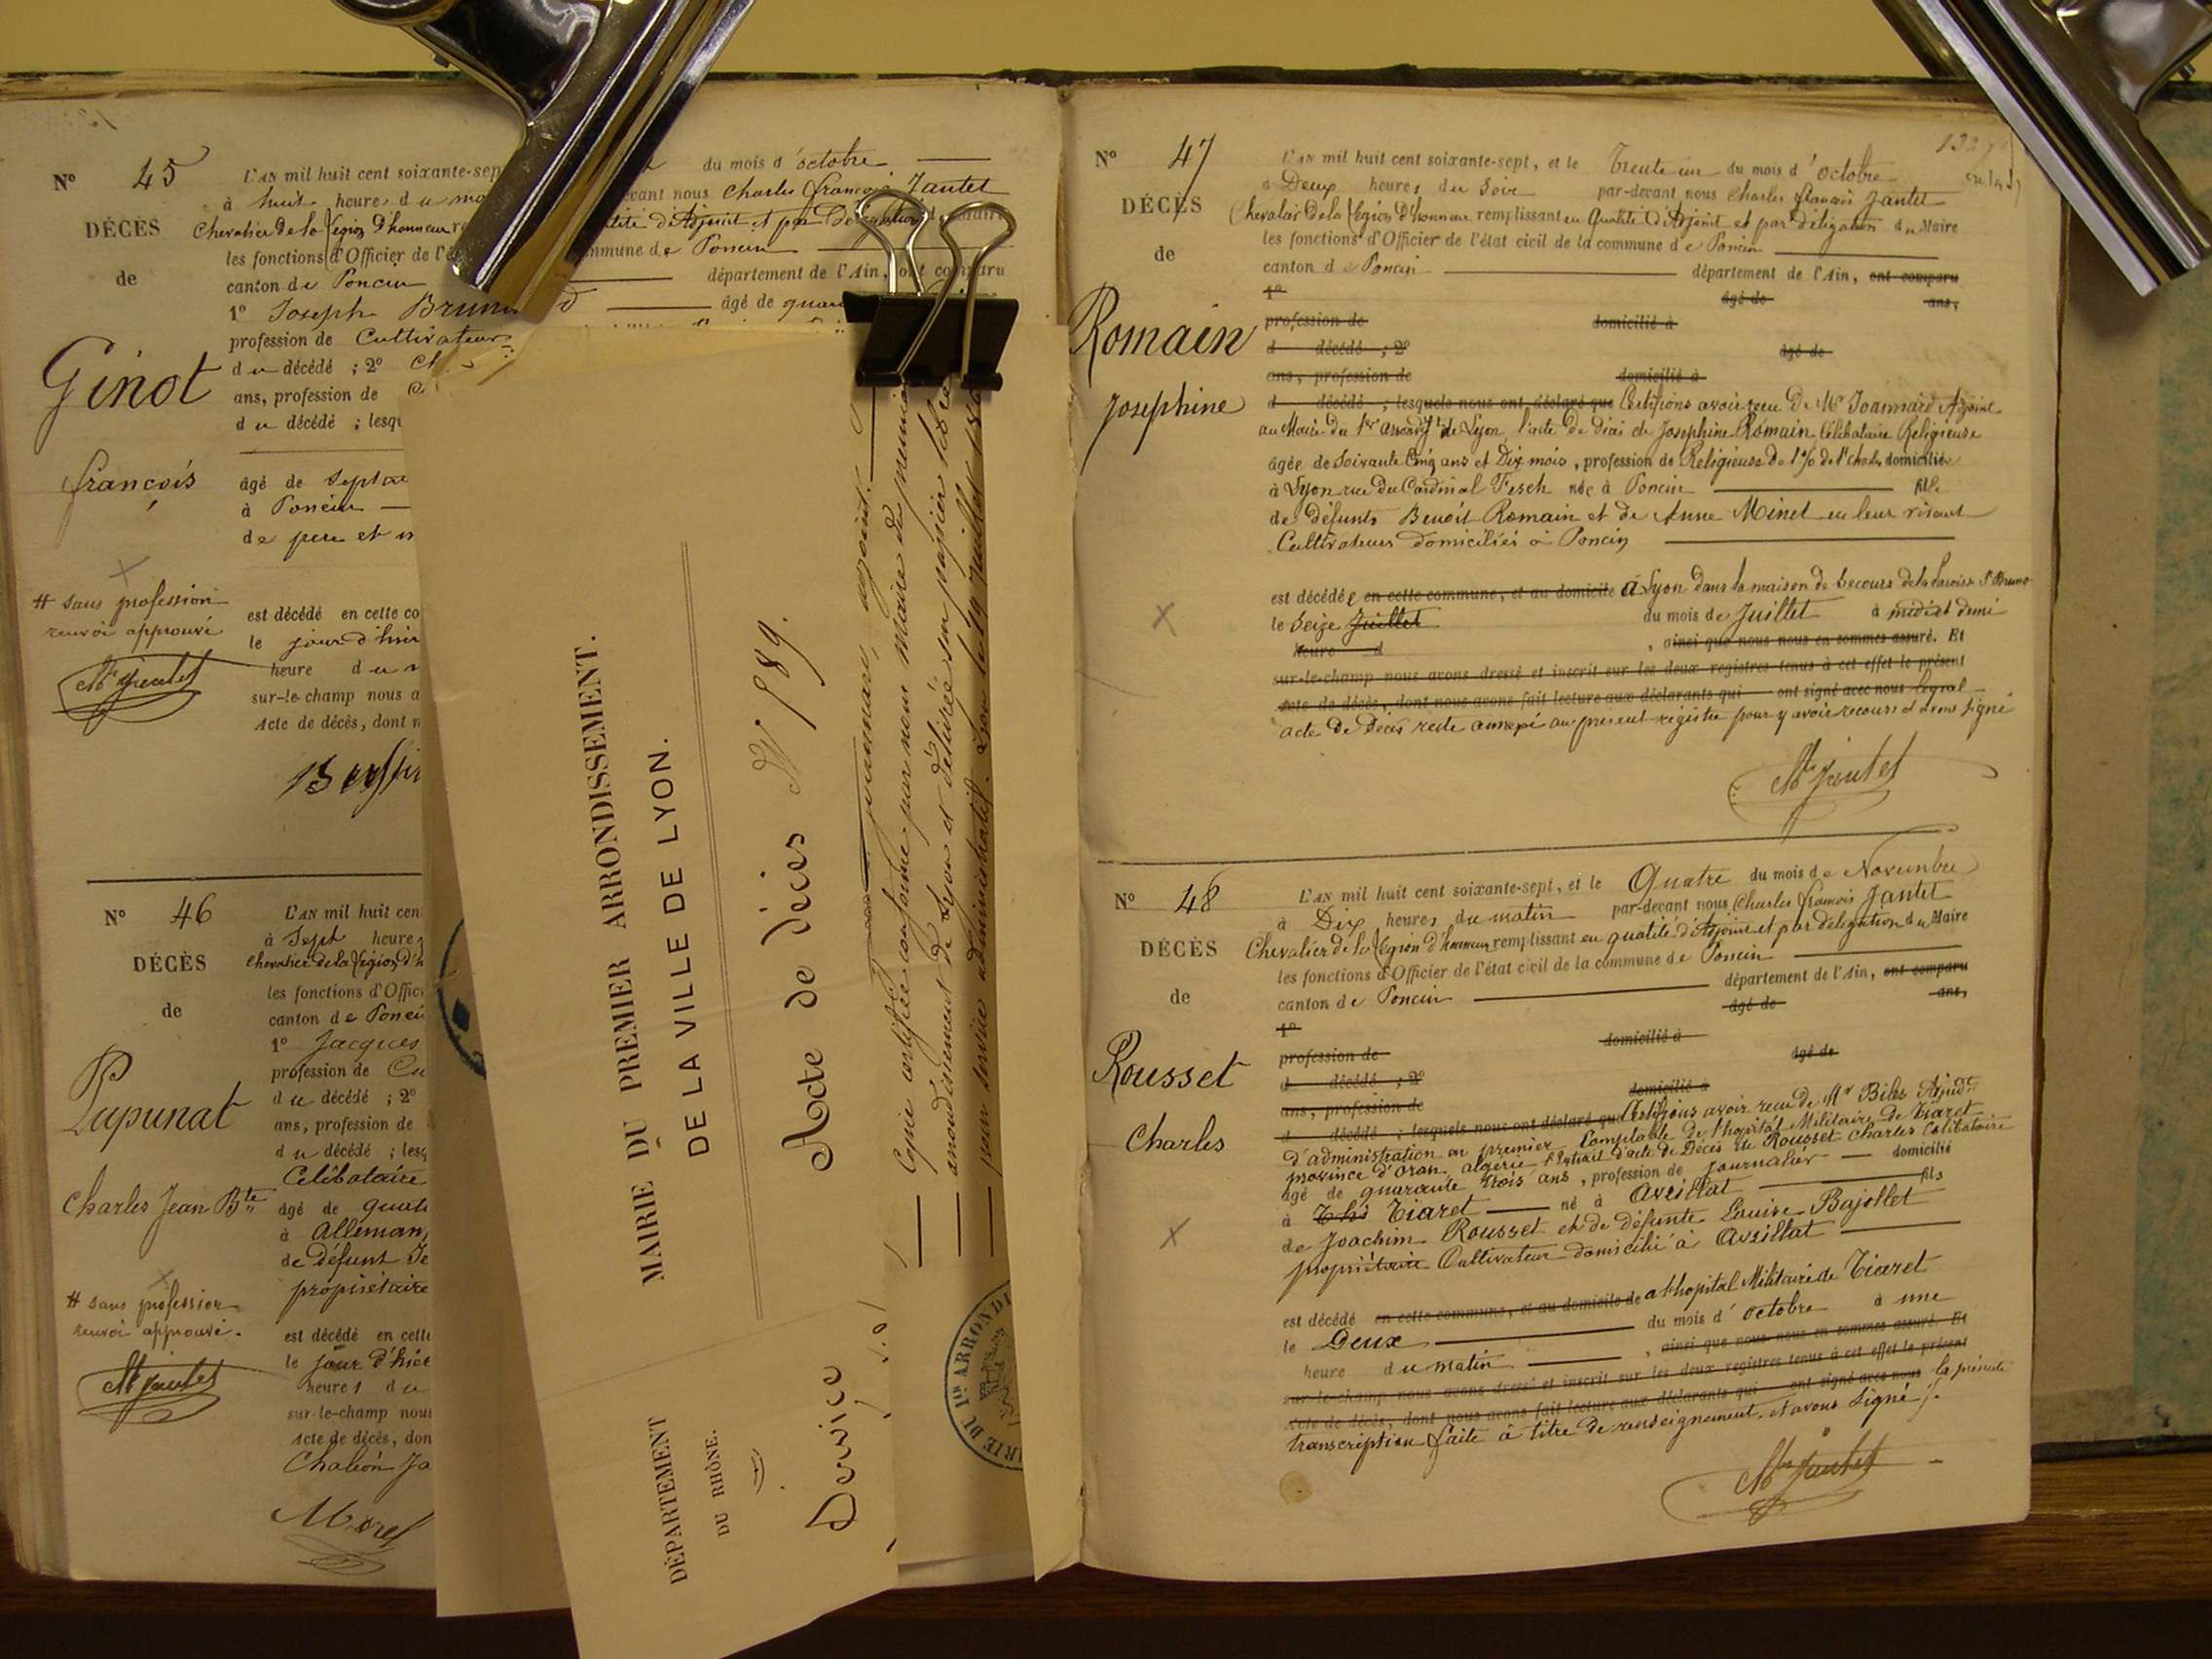 N° 45
DÉCÈS
de
Ginot
françois
# sans profession
renvoi approuvé
L'AN mil huit cent soixante-sep du mois d'octobre
à huit heures du mo vant nous Charles françois Jantet
Chevalier de la Légion d'honneur re lité d'Adjoint et par Délégation du Maire
les fonctions d'Officier de l'é mmune de Poncin
canton de Poncin département de l'Ain, ont comparu
1° Joseph Brun d âgé de quar
profession de Cultivateur
du décédé ; 2° Ch
ans, profession de
du décédé ; lesq
âgé de Septa
à Poncin
de père et m
est décédé en cette co
le jour d'hier
heure du m
sur-le-champ nous a
acte de décès, dont n
N° 46
DÉCÈS
de
Pupunat
Charles Jean Bte
# sans profession
renvoi approuvé.
Mle Jantet
L'AN mil huit cen
à Sept heures
Chevalier de la Légion d'h
les fonctions d'Offici
canton de Poncin
1° Jacques
profession de Cu
du décédé ; 2°
ans, profession de
du décédé ; lesq
Célibataire
âgé de quat
à Alleman
de défunt Je
propriétaire
est décédé en cette
le jour d'hier
heures du
sur-le-champ nous
acte de décès, don
Chaléon Ja
Morel
DÉPARTEMENT
DU RHÔNE.
MAIRIE DU PREMIER ARRONDISSEMENT.
DE LA VILLE DE LYON.
Acte de décès N° 589.
joannard, adjoint.
Copie certifiée conforme par nous Maire du premier
arrondissement de Lyon et délivrée sur papier libre
pour service administratif. Lyon le 19 Juillet
MAIRIE DU 1er ARRONDI
N° 47
DÉCÈS
de
Romain
Josephine
L'AN mil huit cent soixante-sept, et le Trente un du mois d'octobre
à Deux heures du Soir par-devant nous Charles françois Jantet
Chevalier de la Légion d'honneur remplissant en Qualité d'Adjoint et par délégation du Maire
les fonctions d'Officier de l'état civil de la commune de Poncin
canton de Poncin département de l'Ain, ont comparu
1° âgé de ans,
profession de domicilié à
d décédé ; 2° âgé de
ans, profession de domicilié à
d décédé ; lesquels nous ont déclaré que Certifions avoir reçu de Mr Joannard Adjoint
au Maire du 1er arrondt de Lyon, l'acte de décès de Josephine Romain Célibataire Religieuse
âgée de Soixante Cinq ans et Dix mois, profession de Religieuse de domiciliée
à Lyon rue du Cardinal Fesch née à Poncin fille
de défunts Benoit Romain et de Anne Minet en leur vivant
Cultivateurs domiciliés à Poncin
est décédée en cette commune, et au domicile à Lyon dans la maison de Secours de la Paroisse St Bruno
le Seize Juillet du mois de Juillet à midi et demi
heure d , ainsi que nous nous en sommes assuré. Et
sur-le-champ nous avons dressé et inscrit sur les deux registres tenus à cet effet le présent
acte de décès, dont nous avons fait lecture aux déclarants qui ont signé avec nous Legral
acte de Décès reste annexé au present registre pour y avoir recours et avons signé
Mle Jantet
N° 48
DÉCÈS
de
Rousset
Charles
L'AN mil huit cent soixante-sept, et le Quatre du mois de Novembre
à Dix heures du matin par-devant nous Charles françois Jantet
Chevalier de la Légion d'honneur remplissant en qualité d'Adjoint et par délégation du Maire
les fonctions d'Officier de l'état civil de la commune de Poncin
canton de Poncin département de l'Ain, ont comparu
1° âgé de ans,
profession de domicilié à
d décédé ; 2° âgé de
ans, profession de domicilié à
d décédé ; lesquels nous ont déclaré que Certifions avoir reçu de Mr Adjudt
d'administration en premier Comptable de l'hopital Militaire de Tiaret
province d'oran algérie l'Extrait d'acte de Décès de Rousset Charles Célibataire
âgé de quarante trois ans, profession de journalier domicilié
à Tiaret né à Avrillat fils
de Joachim Rousset et de défunte Louise Bajollet
propriétaire Cultivateur domicilié à Avrillat
est décédé en cette commune, et au domicile de à l'hopital Militaire de Tiaret
le Deux du mois d'octobre à une
heure du matin , ainsi que nous nous en sommes assuré. Et
sur-le-champ nous avons dressé et inscrit sur les deux registres tenus à cet effet le présent
acte de décès, dont nous avons fait lecture aux déclarants qui ont signé avec nous la présente
transcription faite à titre de renseignement, et avons Signé
Mle Jantet